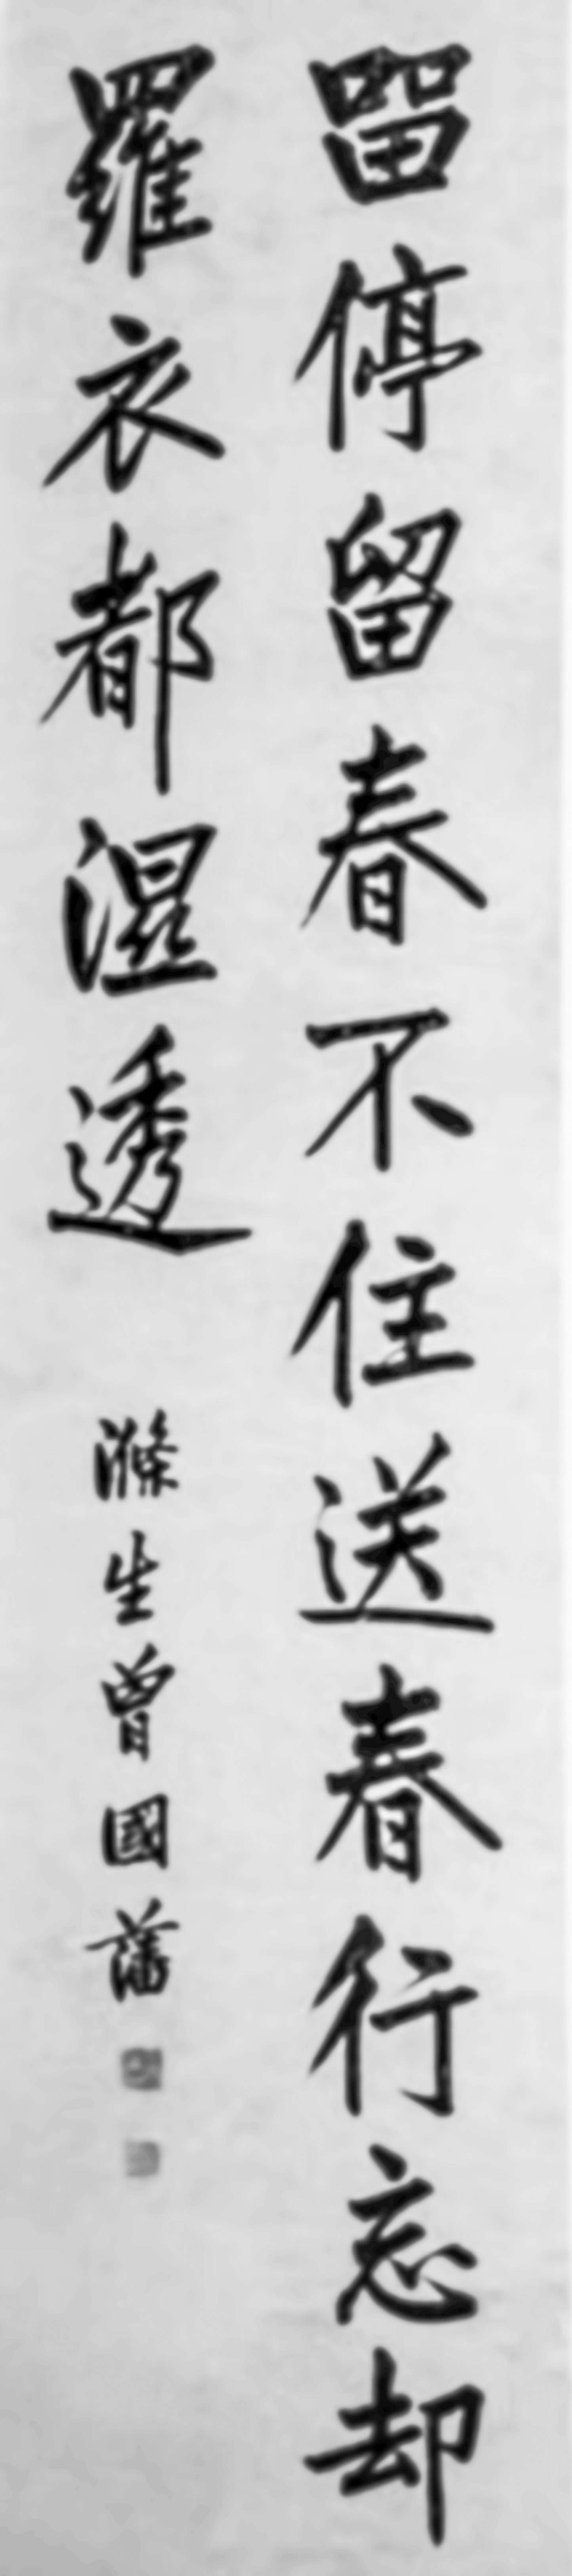 留停留春不住送春行忘却
羅衣都濕透
滌生曾國藩